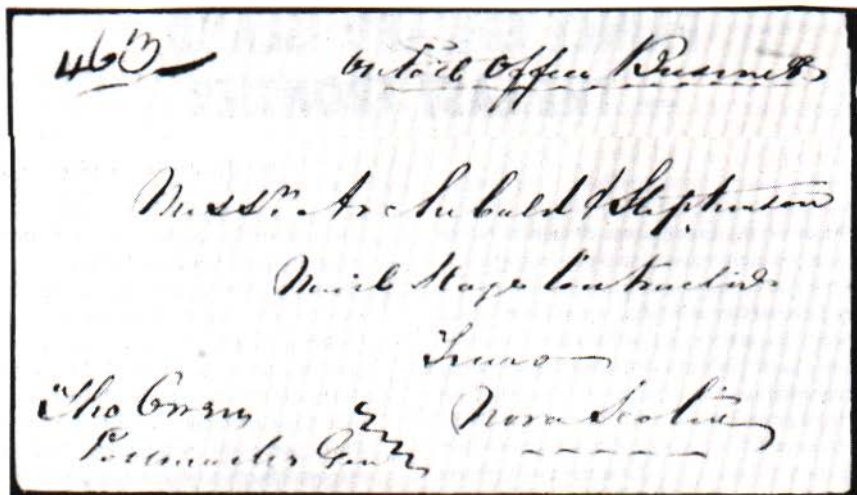 463
on Post Office Business
Messrs. Archibald & Stephenson
Mail Stage Contractors
Truro
Nova Scotia
Tho Owen
Postmaster Genl